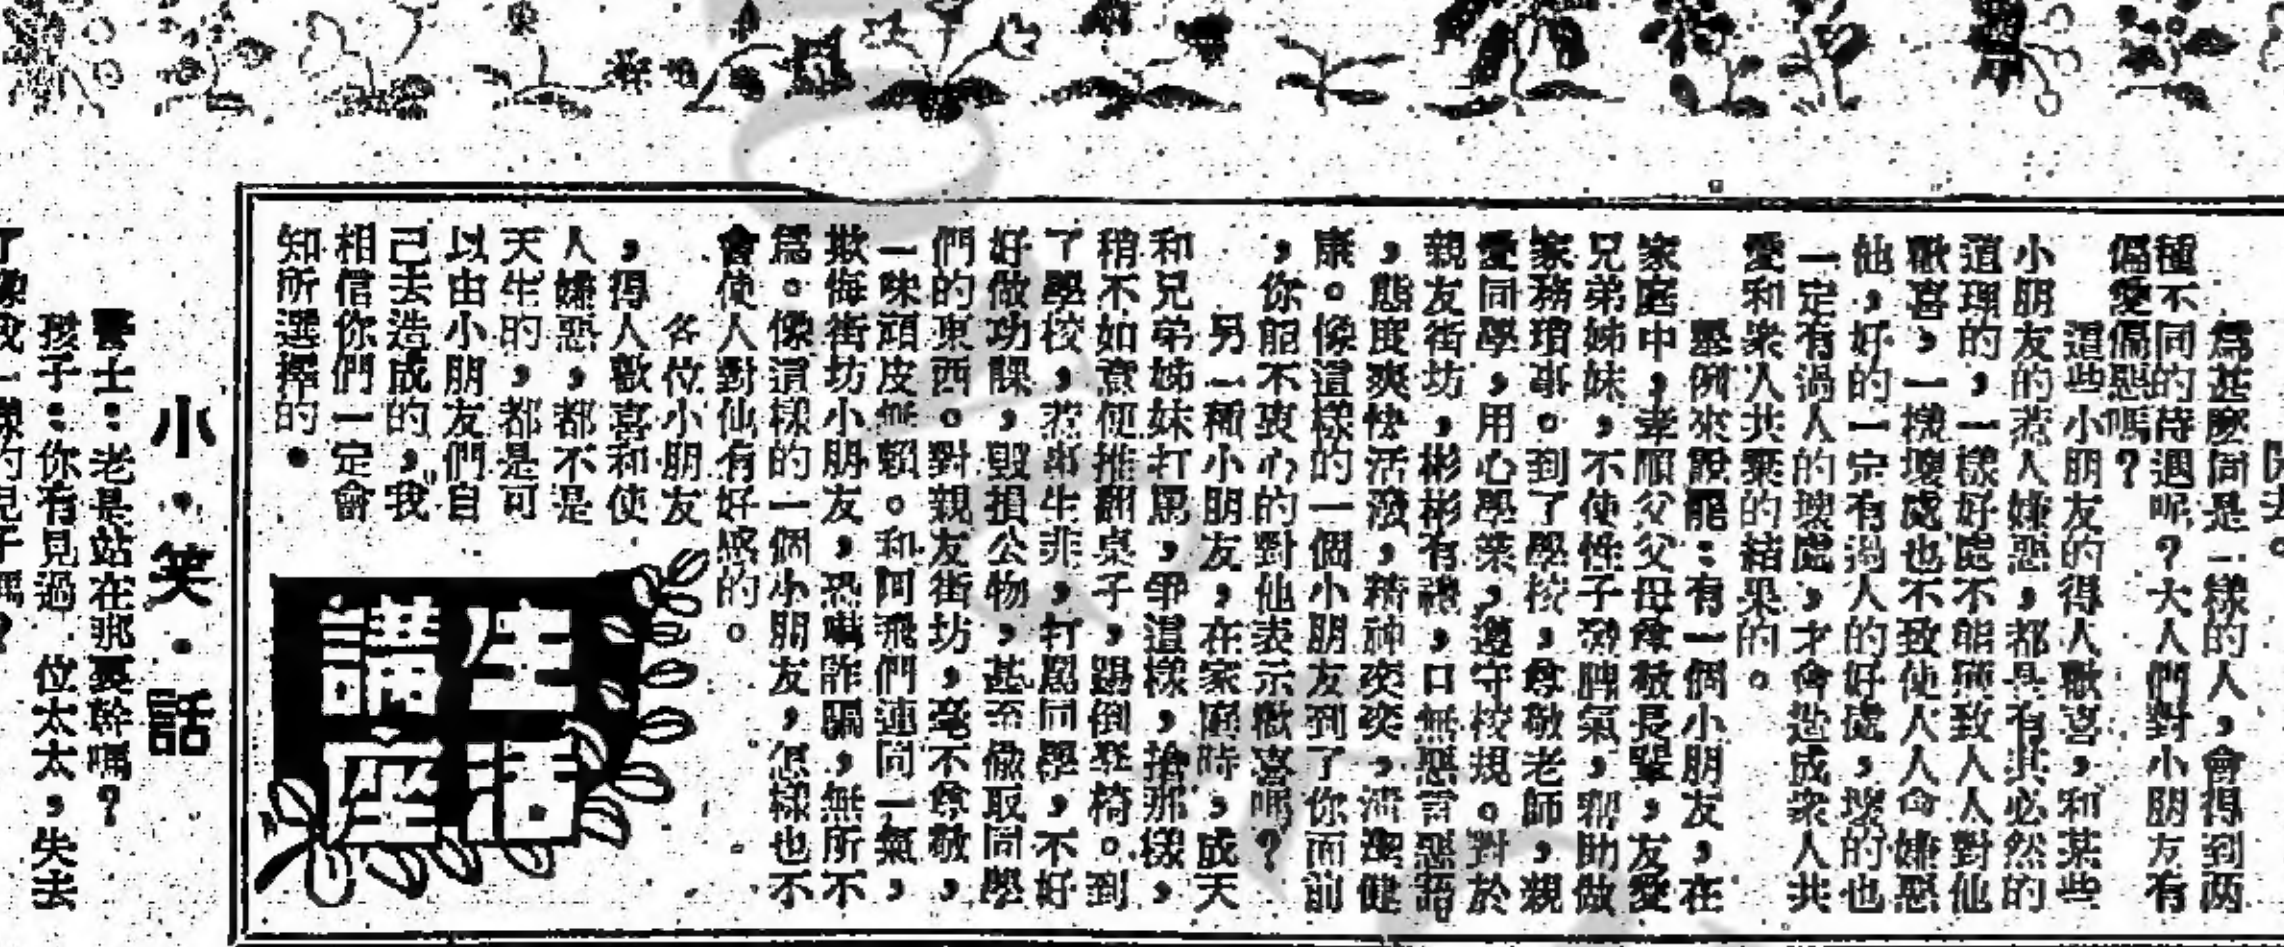 為甚麼同是一樣的人，會得到两
種不同的待遇呢？大人們對小朋友有
偏愛偏惡嗎？
這些小朋友的得人歡喜，和某些
小朋友的惹人嫌惡，都具有其必然的
道理的，一樣好處不能致人人對他
歡喜，一樣壞處也不致使人人會嫌惡
他，好的一定有過人的好處，壞的也
一定有過人的壞處，才會造成衆人共
愛和衆人共棄的結果的。
舉例來說罷：有一個小朋友，在
家庭中，孝順父父母母敬長輩，友愛
兄弟姊妹，不使性子發脾氣，幫助做
家務瑣事。到了學校，尊敬老師，親
愛同學，用心學業，遵守校規。對於
親友街坊，彬彬有禮，口無惡言惡語
，態度爽快活潑，精神奕奕，清潔健
康。像這樣的一個小朋友到了你面前
，你能不衷心的對他表示歡喜嗎？
另一種小朋友，在家庭時，成天
和兄弟姊妹打罵，爭這樣，搶那樣，
稍不如意便推翻桌子，踢倒椅。到
了學校，惹事生非，打罵同學，不好
好做功課，毀損公物，甚至偸取同學
們的東西。對親友街坊，毫不尊敬，
一味頑皮無賴。和阿飛們連同一氣，
欺侮街坊小朋友，恐嚇詐騙，無所不
為。像這樣的一個小朋友，怎樣也不
會使人對他有好感的。
各位小朋友
，得人歡喜和使
人嫌惡，都不是
天生的，都是可
以由小朋友們自
己去造成的，我
相信你們一定會
知所選擇的．
生活
講座
小．笑．話
警士：老是站在那裏幹嗎？
孩子：你有見過 位太太，失去